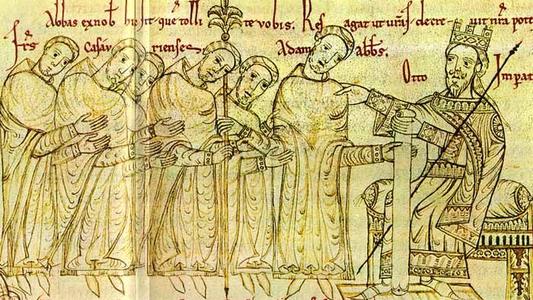 Abbas ex nob hic sit que tolli te vobis. Res agat ut vr̄m decre vit nr̄a pote
Frs Casau rienses Adam Abbs. Otto Impat